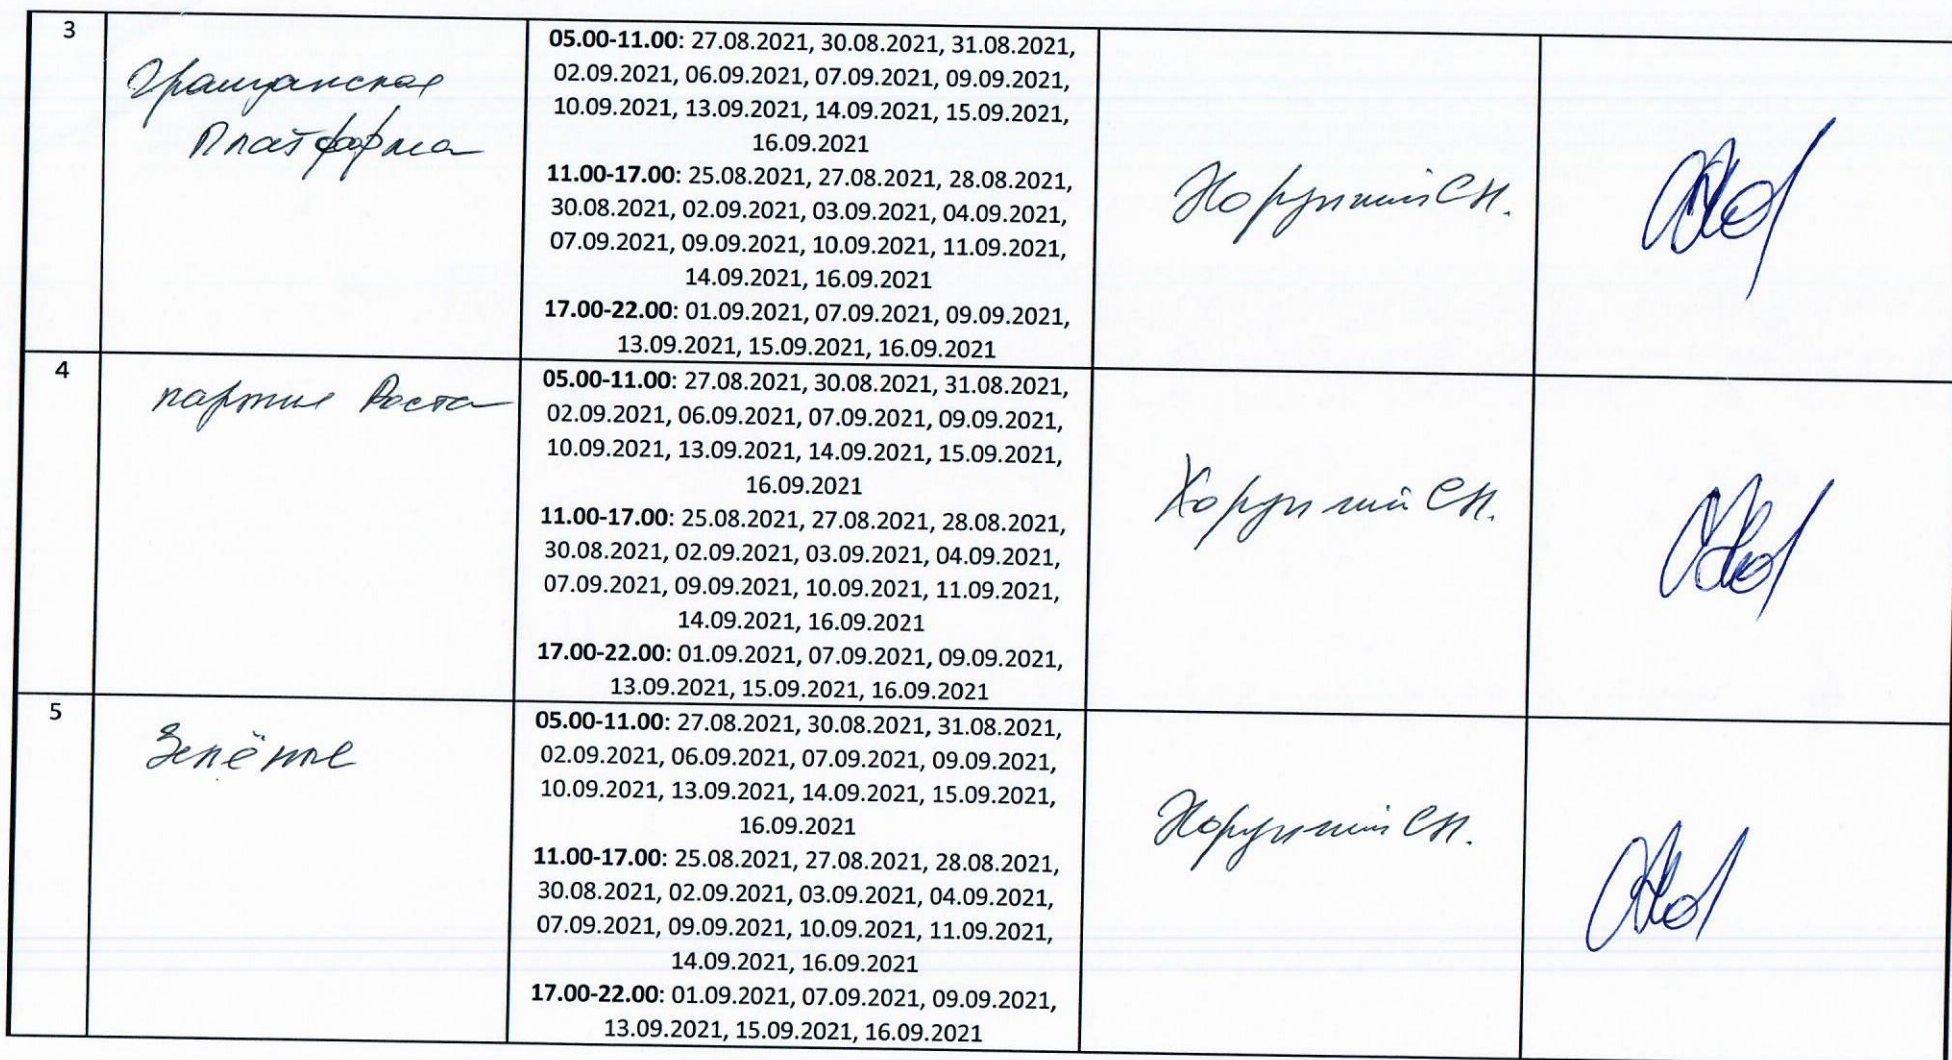 3
Гражданская
Платформа
05.00-11.00: 27.08.2021, 30.08.2021, 31.08.2021,
02.09.2021, 06.09.2021, 07.09.2021, 09.09.2021,
10.09.2021, 13.09.2021, 14.09.2021, 15.09.2021,
16.09.2021
11.00-17.00: 25.08.2021, 27.08.2021, 28.08.2021,
30.08.2021, 02.09.2021, 03.09.2021, 04.09.2021,
07.09.2021, 09.09.2021, 10.09.2021, 11.09.2021,
14.09.2021, 16.09.2021
17.00-22.00: 01.09.2021, 07.09.2021, 09.09.2021,
13.09.2021, 15.09.2021, 16.09.2021
Хорунжий С.Н.
4
партия Роста
05.00-11.00: 27.08.2021, 30.08.2021, 31.08.2021,
02.09.2021, 06.09.2021, 07.09.2021, 09.09.2021,
10.09.2021, 13.09.2021, 14.09.2021, 15.09.2021,
16.09.2021
11.00-17.00: 25.08.2021, 27.08.2021, 28.08.2021,
30.08.2021, 02.09.2021, 03.09.2021, 04.09.2021,
07.09.2021, 09.09.2021, 10.09.2021, 11.09.2021,
14.09.2021, 16.09.2021
17.00-22.00: 01.09.2021, 07.09.2021, 09.09.2021,
13.09.2021, 15.09.2021, 16.09.2021
Хорунжий С.Н.
5
Зелёные
05.00-11.00: 27.08.2021, 30.08.2021, 31.08.2021,
02.09.2021, 06.09.2021, 07.09.2021, 09.09.2021,
10.09.2021, 13.09.2021, 14.09.2021, 15.09.2021,
16.09.2021
11.00-17.00: 25.08.2021, 27.08.2021, 28.08.2021,
30.08.2021, 02.09.2021, 03.09.2021, 04.09.2021,
07.09.2021, 09.09.2021, 10.09.2021, 11.09.2021,
14.09.2021, 16.09.2021
17.00-22.00: 01.09.2021, 07.09.2021, 09.09.2021,
13.09.2021, 15.09.2021, 16.09.2021
Хорунжий С.Н.